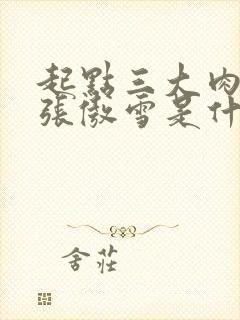 起點三大肉
張傲雪是什
舍莊